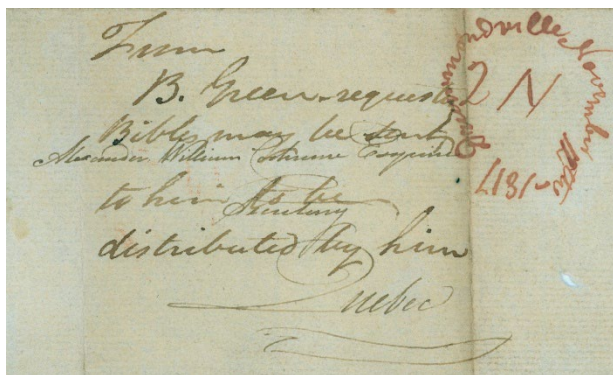 From
B. Green requests
Bibles may be sent
Alexander William Cochrane Esquire
to him to be
Secretary
distributed by him
Quebec
Drummondville November
2 N
1817